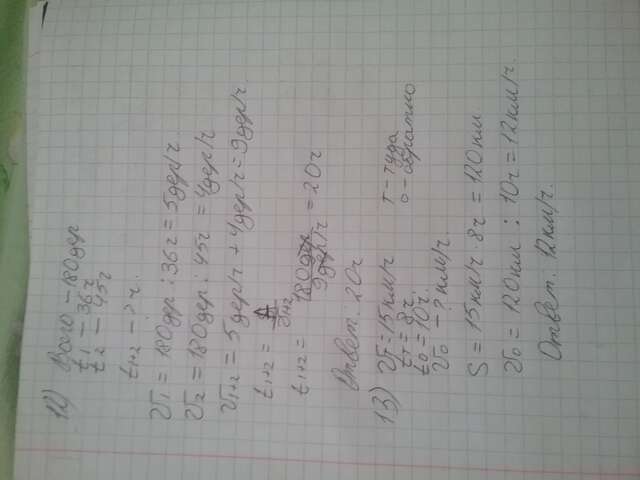 12) Всего – 180дер
t1 – 36ч
t2 – 45ч
t1+2 – ? ч.
V1 = 180дер : 36ч = 5дер/ч
V2 = 180дер : 45ч = 4дер/ч
V1+2 = 5дер/ч + 4дер/ч = 9дер/ч.
t1+2 = A/V1+2
t1+2 = 180дер/9дер/ч = 20ч
Ответ. 20ч
13) Vт = 15км/ч т – туда
tт = 8ч. о – обратно
tо = 10ч.
Vо – ? км/ч.
S = 15км/ч · 8ч = 120км
Vо = 120км : 10ч = 12км/ч.
Ответ. 12км/ч.